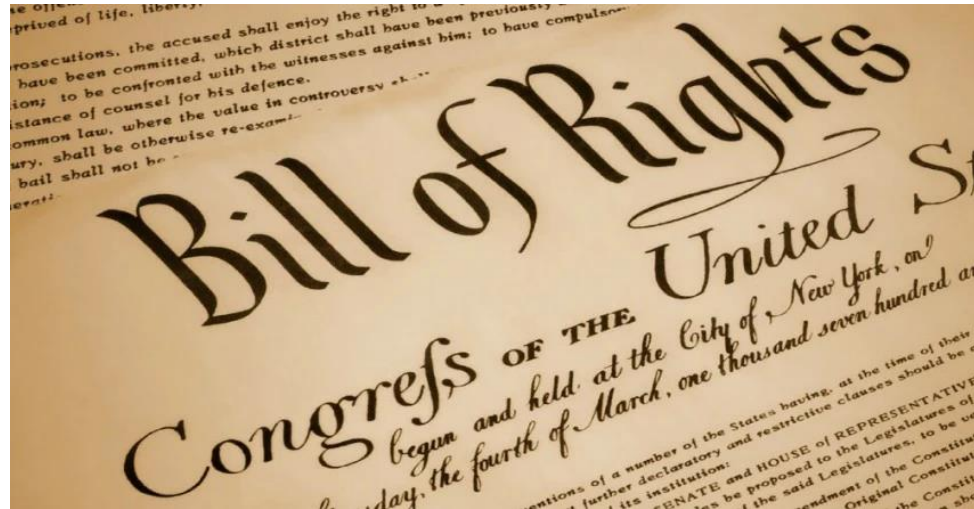 prived of life, liberty,
rosecutions, the accused shall enjoy the right to a
have been committed, which district shall have been previously
ion; to be confronted with the witnesses against him; to have compulsor
istance of counsel for his defence.
ommon law, where the value in controversy shall
ury, shall be otherwise re-exami
bail shall not be
Bill of Rights
Congreſs OF THE United St
begun and held at the City of New York, on
sday, the fourth of March, one thousand seven hundred an
entions of a number of the States having, at the time of their
further declaratory and restrictive clauses should be
its institution:
ENATE and HOUSE of REPRESENTATIV
be proposed to the Legislatures of
the said Legislatures, to be
endment of the Constitu
Original Constitut
the Constit